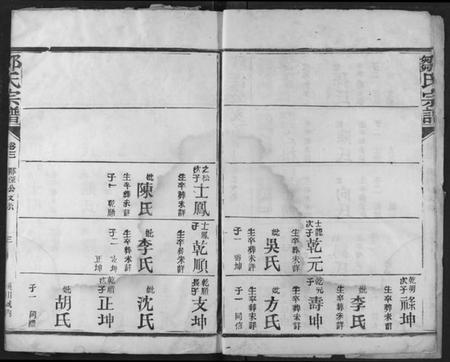 鄒氏宗譜
士龍
次子
乾元
生卒葬未詳
妣
吳氏
生卒葬未詳
子一
次子
順坤
生卒葬未詳
妣
李氏
生卒葬未詳
乾元
子
壽坤
生卒葬未詳
妣
方氏
生卒葬未詳
子一
同信
之松
次子
士鳳
生卒葬未詳
妣
陳氏
生卒葬未詳
子一
乾順
士鳳
子
乾順
生卒葬未詳
妣
李氏
生卒葬未詳
子二
支坤
正坤
乾順
長子
支坤
生卒葬未詳
妣
沈氏
乾順
次子
正坤
生卒葬未詳
妣
胡氏
子一
同禮
鄒氏宗譜
卷三
三